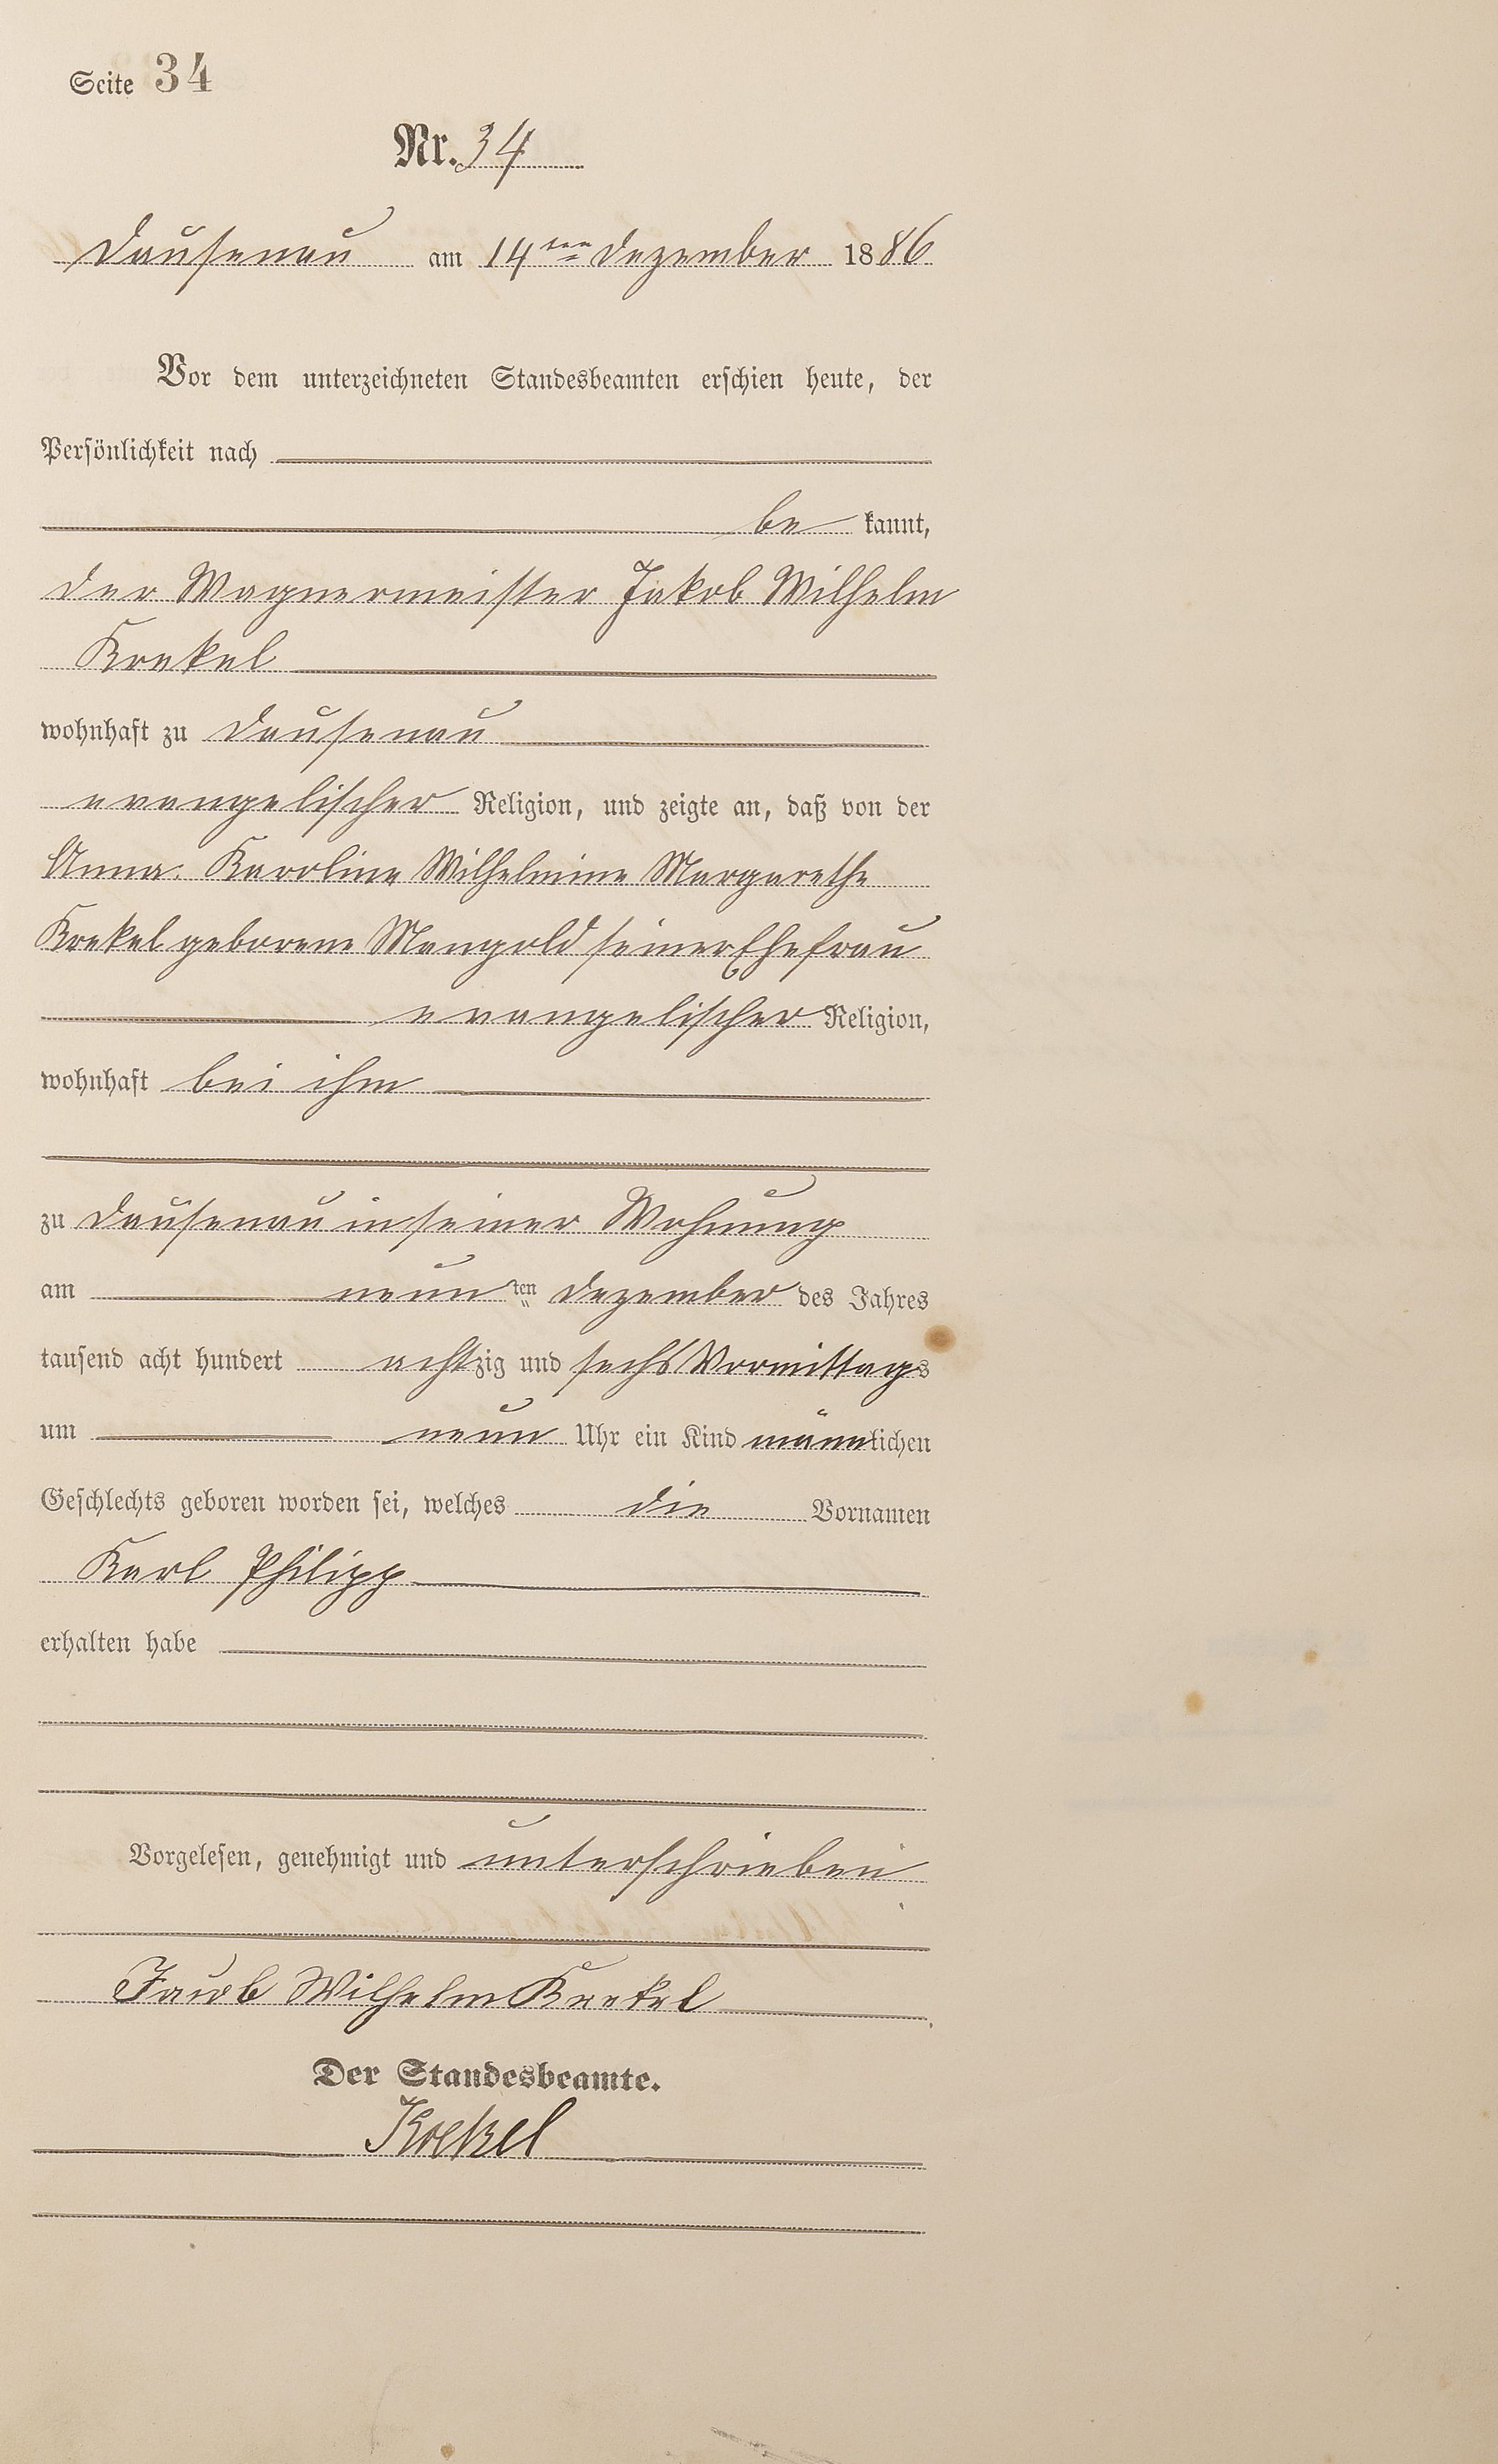 Seite 34
Nr. 34
Dausenau am 14ten Dezember 1886
Vor dem unterzeichneten Standesbeamten erschien heute, der
Persönlichkeit nach
be kannt,
der Wagnermeister Jakob Wilhelm
Krekel
wohnhaft zu Dausenau
evangelischer Religion, und zeigte an, daß von der
Anna Karoline Wilhelmine Margarethe
Krekel geborene Mangold seiner Ehefrau
evangelischer Religion,
wohnhaft bei ihm
zu Dausenau in seiner Wohnung
am neun ten Dezember des Jahres
tausend acht hundert achtzig und sechs Vormittags
um neun Uhr ein Kind männlichen
Geschlechts geboren worden sei, welches die Vornamen
Karl Philipp
erhalten habe
Vorgelesen, genehmigt und unterschrieben
Jacob Wilhelm Krekel
Der Standesbeamte.
Krekel